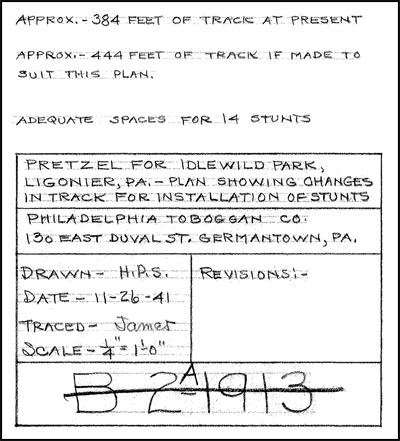 APPROX.- 384 FEET OF TRACK AT PRESENT
APPROX.- 444 FEET OF TRACK IF MADE TO
SUIT THIS PLAN.
ADEQUATE SPACES FOR 14 STUNTS
PRETZEL FOR IDLEWILD PARK,
LIGONIER, PA. - PLAN SHOWING CHANGES
IN TRACK FOR INSTALLATION OF STUNTS
PHILADELPHIA TOBOGGAN CO.
130 EAST DUVAL ST. GERMANTOWN, PA.
DRAWN - H.P.S.
DATE - 11-26-41
TRACED - James
SCALE - 1/4" = 1'-0"
REVISIONS:-
B-2A-1913